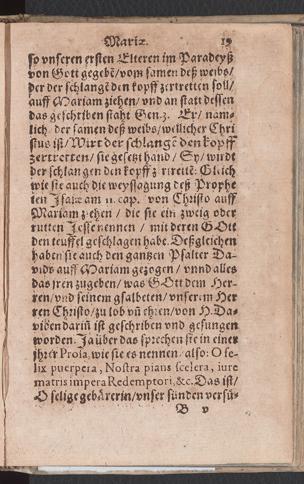 Mariæ. 19
so vnseren ersten Elteren im Paradeyß
von Gott gegebē/vom samen deß weibs/
der der schlangē den kopff zertretten soll/
auff Mariam ziehen/ vnd an statt dessen
das geschriben staht Gen.3. Er/ näm-
lich der samen deß weibs/ wellicher Chri
stus ist/ Wirt der schlangē den kopff
zertretten/ sie gesetzt hand/ Sy/ wirdt
der schlangen den kopff zertrettē. Gleich
wie sie auch die weyssagung deß Prophe
ten Isaie am 11. cap. von Christo auff
Mariam ziehen/ die sie ein zweig oder
rutten Jesse nennen/ mit deren GOtt
den teuffel geschlagen habe. Deßgleichen
haben sie auch den gantzen Psalter Da-
vids auff Mariam gezogen/ vnnd alles
das jren zugeben/ was GOtt dem Her-
ren/ vnd seinem gsalbeten/ vnserem Her
ren Christo/ zu lob vñ ehren/ von H. Da-
viden darin̄ ist geschriben vnd gesungen
worden. Ja über das sprechen sie in einer
jhrer Prosa, wie sie es nennen/ also: O fe-
lix puerpera, Nostra pians scelera, iure
matris impera Redemptori, &c. Das ist/
O selige gebärerin/ vnser sünden versü-
B v